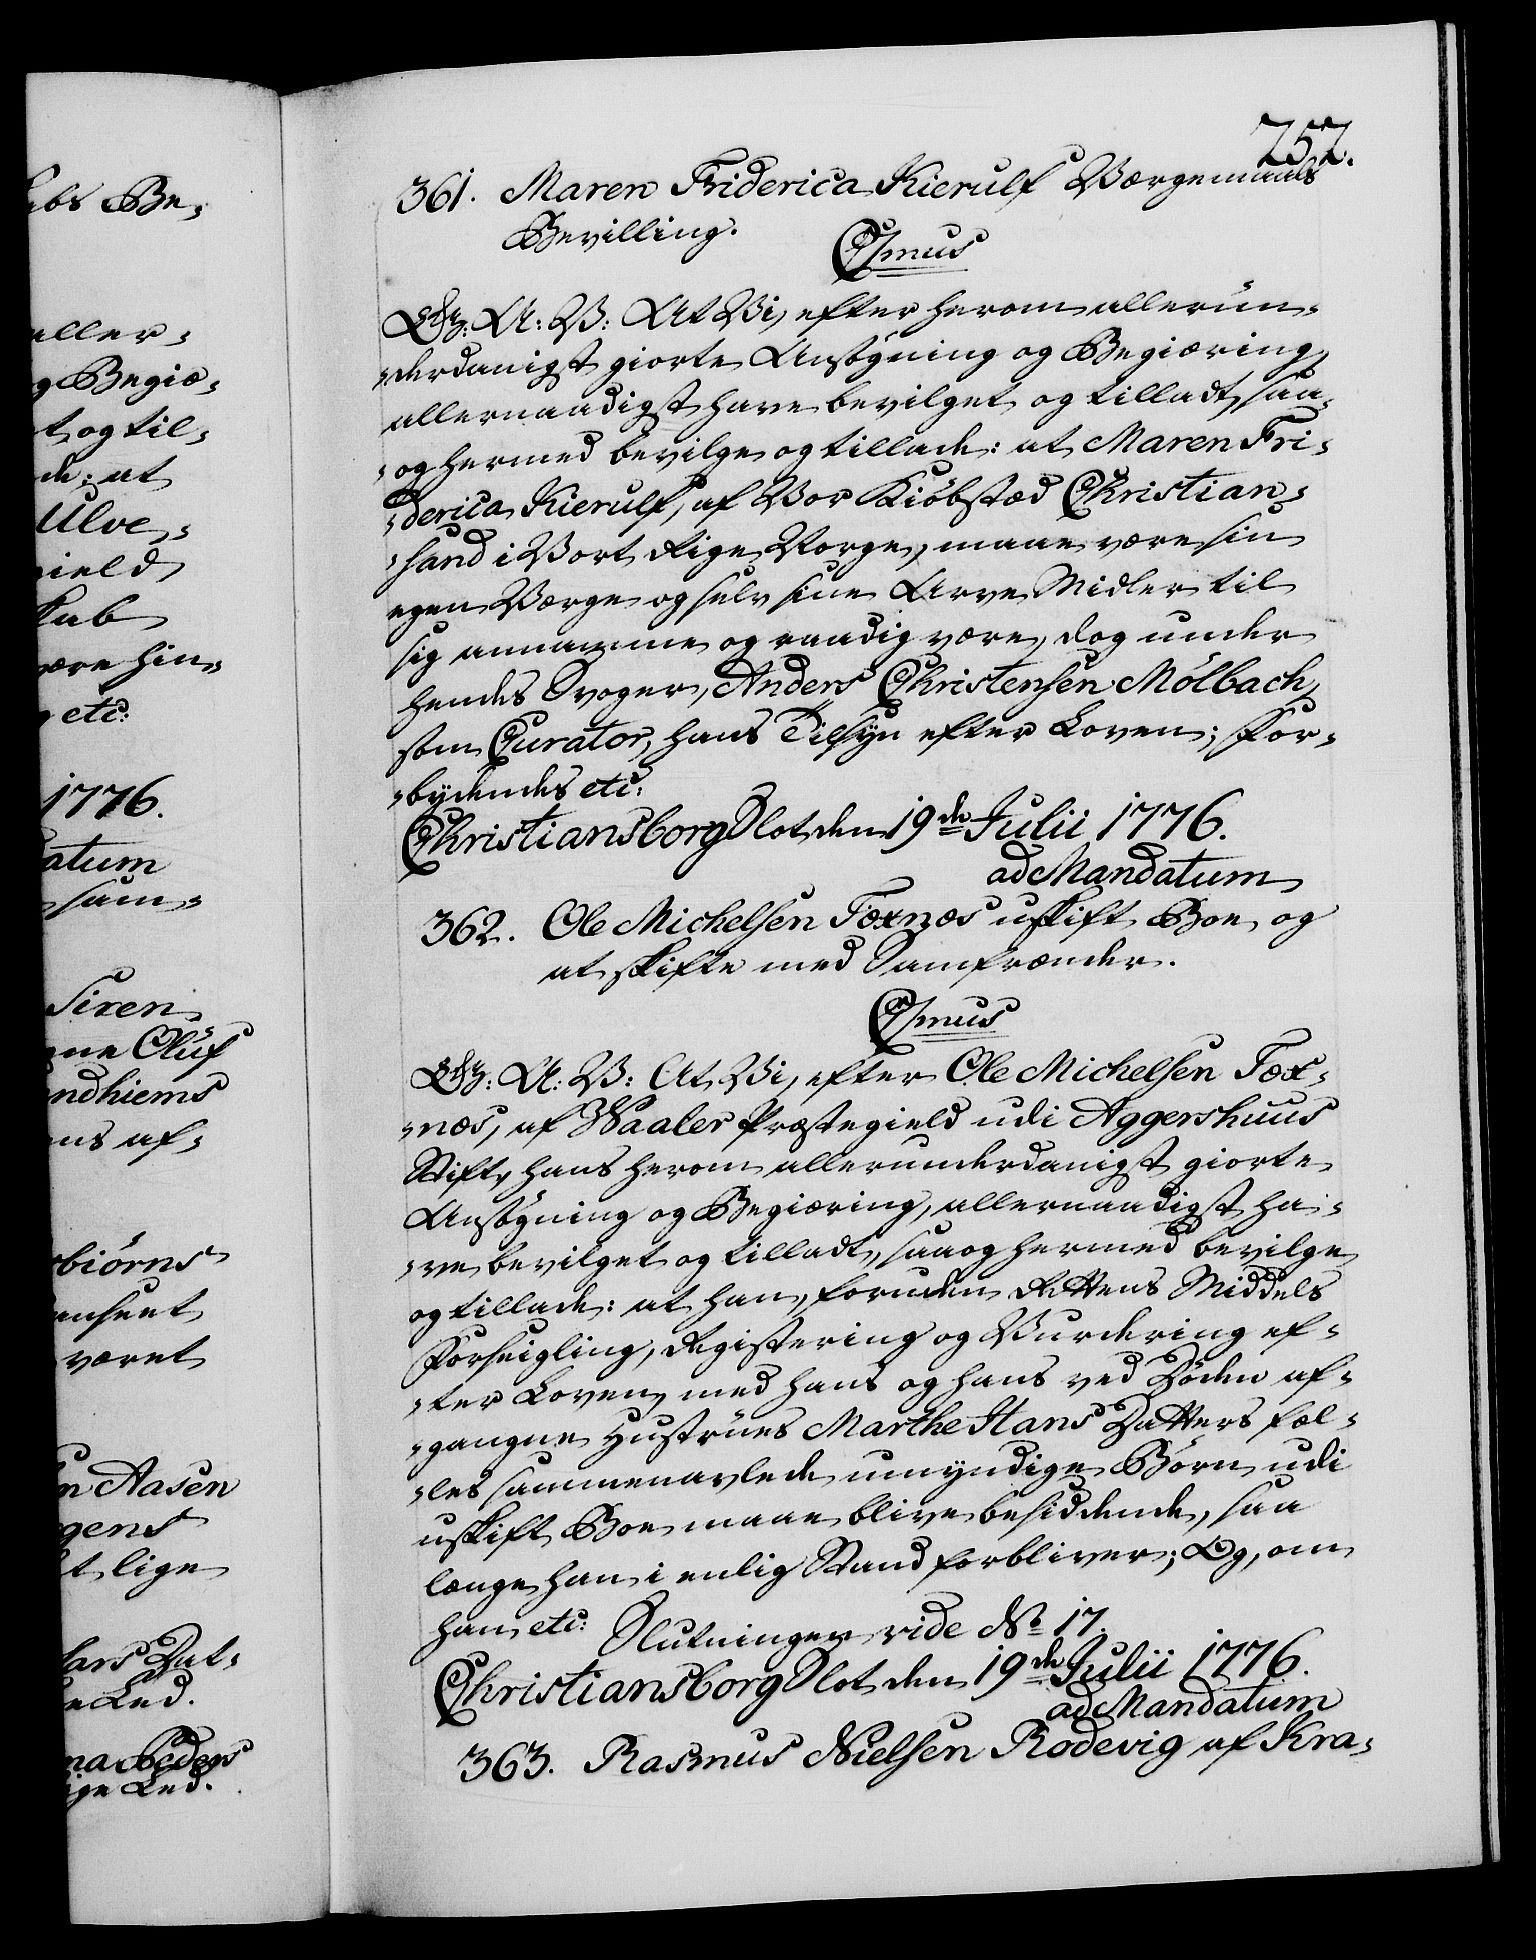 abs Be,
aller-
g Begiæ,
t og til,
de: at
Ulve,
gield
kab
være hin,
etc:
1776.
datum
sam,
Siren
gne Oluf
ndhiems
ens af,
biörns
anseet
været
n Aasen
gens
t lige
Lars Dat,
e Led.
na Peders
ige Led.
252.
361. Maren Friderica Kierulf Værgemaals
Bevilling.
C7mus
G: A: V: At Vi, efter herom allerun,
,derdanigst giorte Ansögning og Begiæring,
allernaadigst have bevilget og tilladt, saa,
,og hermed bevilge og tillade: at Maren Fri,
,derica Kierulf, af Vor Kiöbstæd Christian,
,sand i Vort Rige Norge, maae være sin
egen Værge og selv sine Arve Midler til
sig annamme og raadig være, dog under
hendes Svoger, Anders Christensen Mölbach,
som Curator, hans Tilsyn efter Loven; For,
,bydendes etc:
Christiansborg Slot den 19de Julii 1776.
ad Mandatum
362. Ole Michelsen Foxnæs uskift Boe, og
at skifte med Samfrænder.
C7mus
G: A: V: At Vi, efter Ole Michelsen Fox,
,næs, af Waaler Præstegield udi Aggershuus
Stift, hans herom allerunderdanigst giorte
Ansögning og Begiæring, allernaadigst ha,
,ve bevilget og tilladt, saa og hermed bevilge
og tillade: at han, foruden Rettens Middels
Forseigling, Registering og Vurdering ef,
,ter Loven, med hans og hans ved Döden af,
,gangne Hustrües Marthe Hans Datters fæl,
,les sammenavlede umyndige Börn, udi
uskift Boe maae blive besiddende, saa
længe han i enlig Stand forbliver; Og, om
han etc: Slutningen vide No 17.
Christiansborg Slot den 19de Julii 1776.
ad Mandatum
363. Rasmus Nielsen Rodevig af Kra,